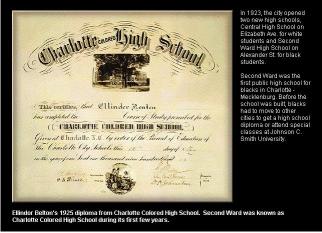 Charlotte COLORED High School
This certifies, that Ellinder Benton
has completed the Course of Study provided for the
CHARLOTTE COLORED HIGH SCHOOL
Given at Charlotte, N.C. by order of the Board of Education of
the Charlotte City Schools this day of
in the year of our Lord one thousand nine hundred and
In 1923, the city opened
two new high schools,
Central High School on
Elizabeth Ave. for white
students and Second
Ward High School on
Alexander St. for black
students.
Second Ward was the
first public high school for
blacks in Charlotte -
Mecklenburg. Before the
school was built, blacks
had to move to other
cities to get a high school
diploma or attend special
classes at Johnson C.
Smith University.
Ellinder Belton's 1925 diploma from Charlotte Colored High School. Second Ward was known as
Charlotte Colored High School during its first few years.